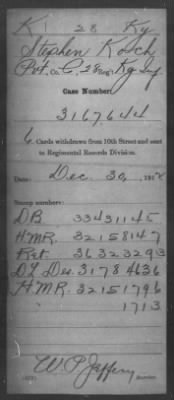 K 28 Ky
Stephen Koch
Pvt. Co. C, 28 Reg't Ky Inf
Case Number
3167644
6 Cards withdrawn from 10th Street and sent
to Regimental Records Division.
Date: Dec. 30, 191
Stamp numbers:
DB 33431145
H.M.R. 32158147
Ret. 36323293
DL Des. 31784636
H.M.R. 32151796
" 1713
W. P. Jeffery